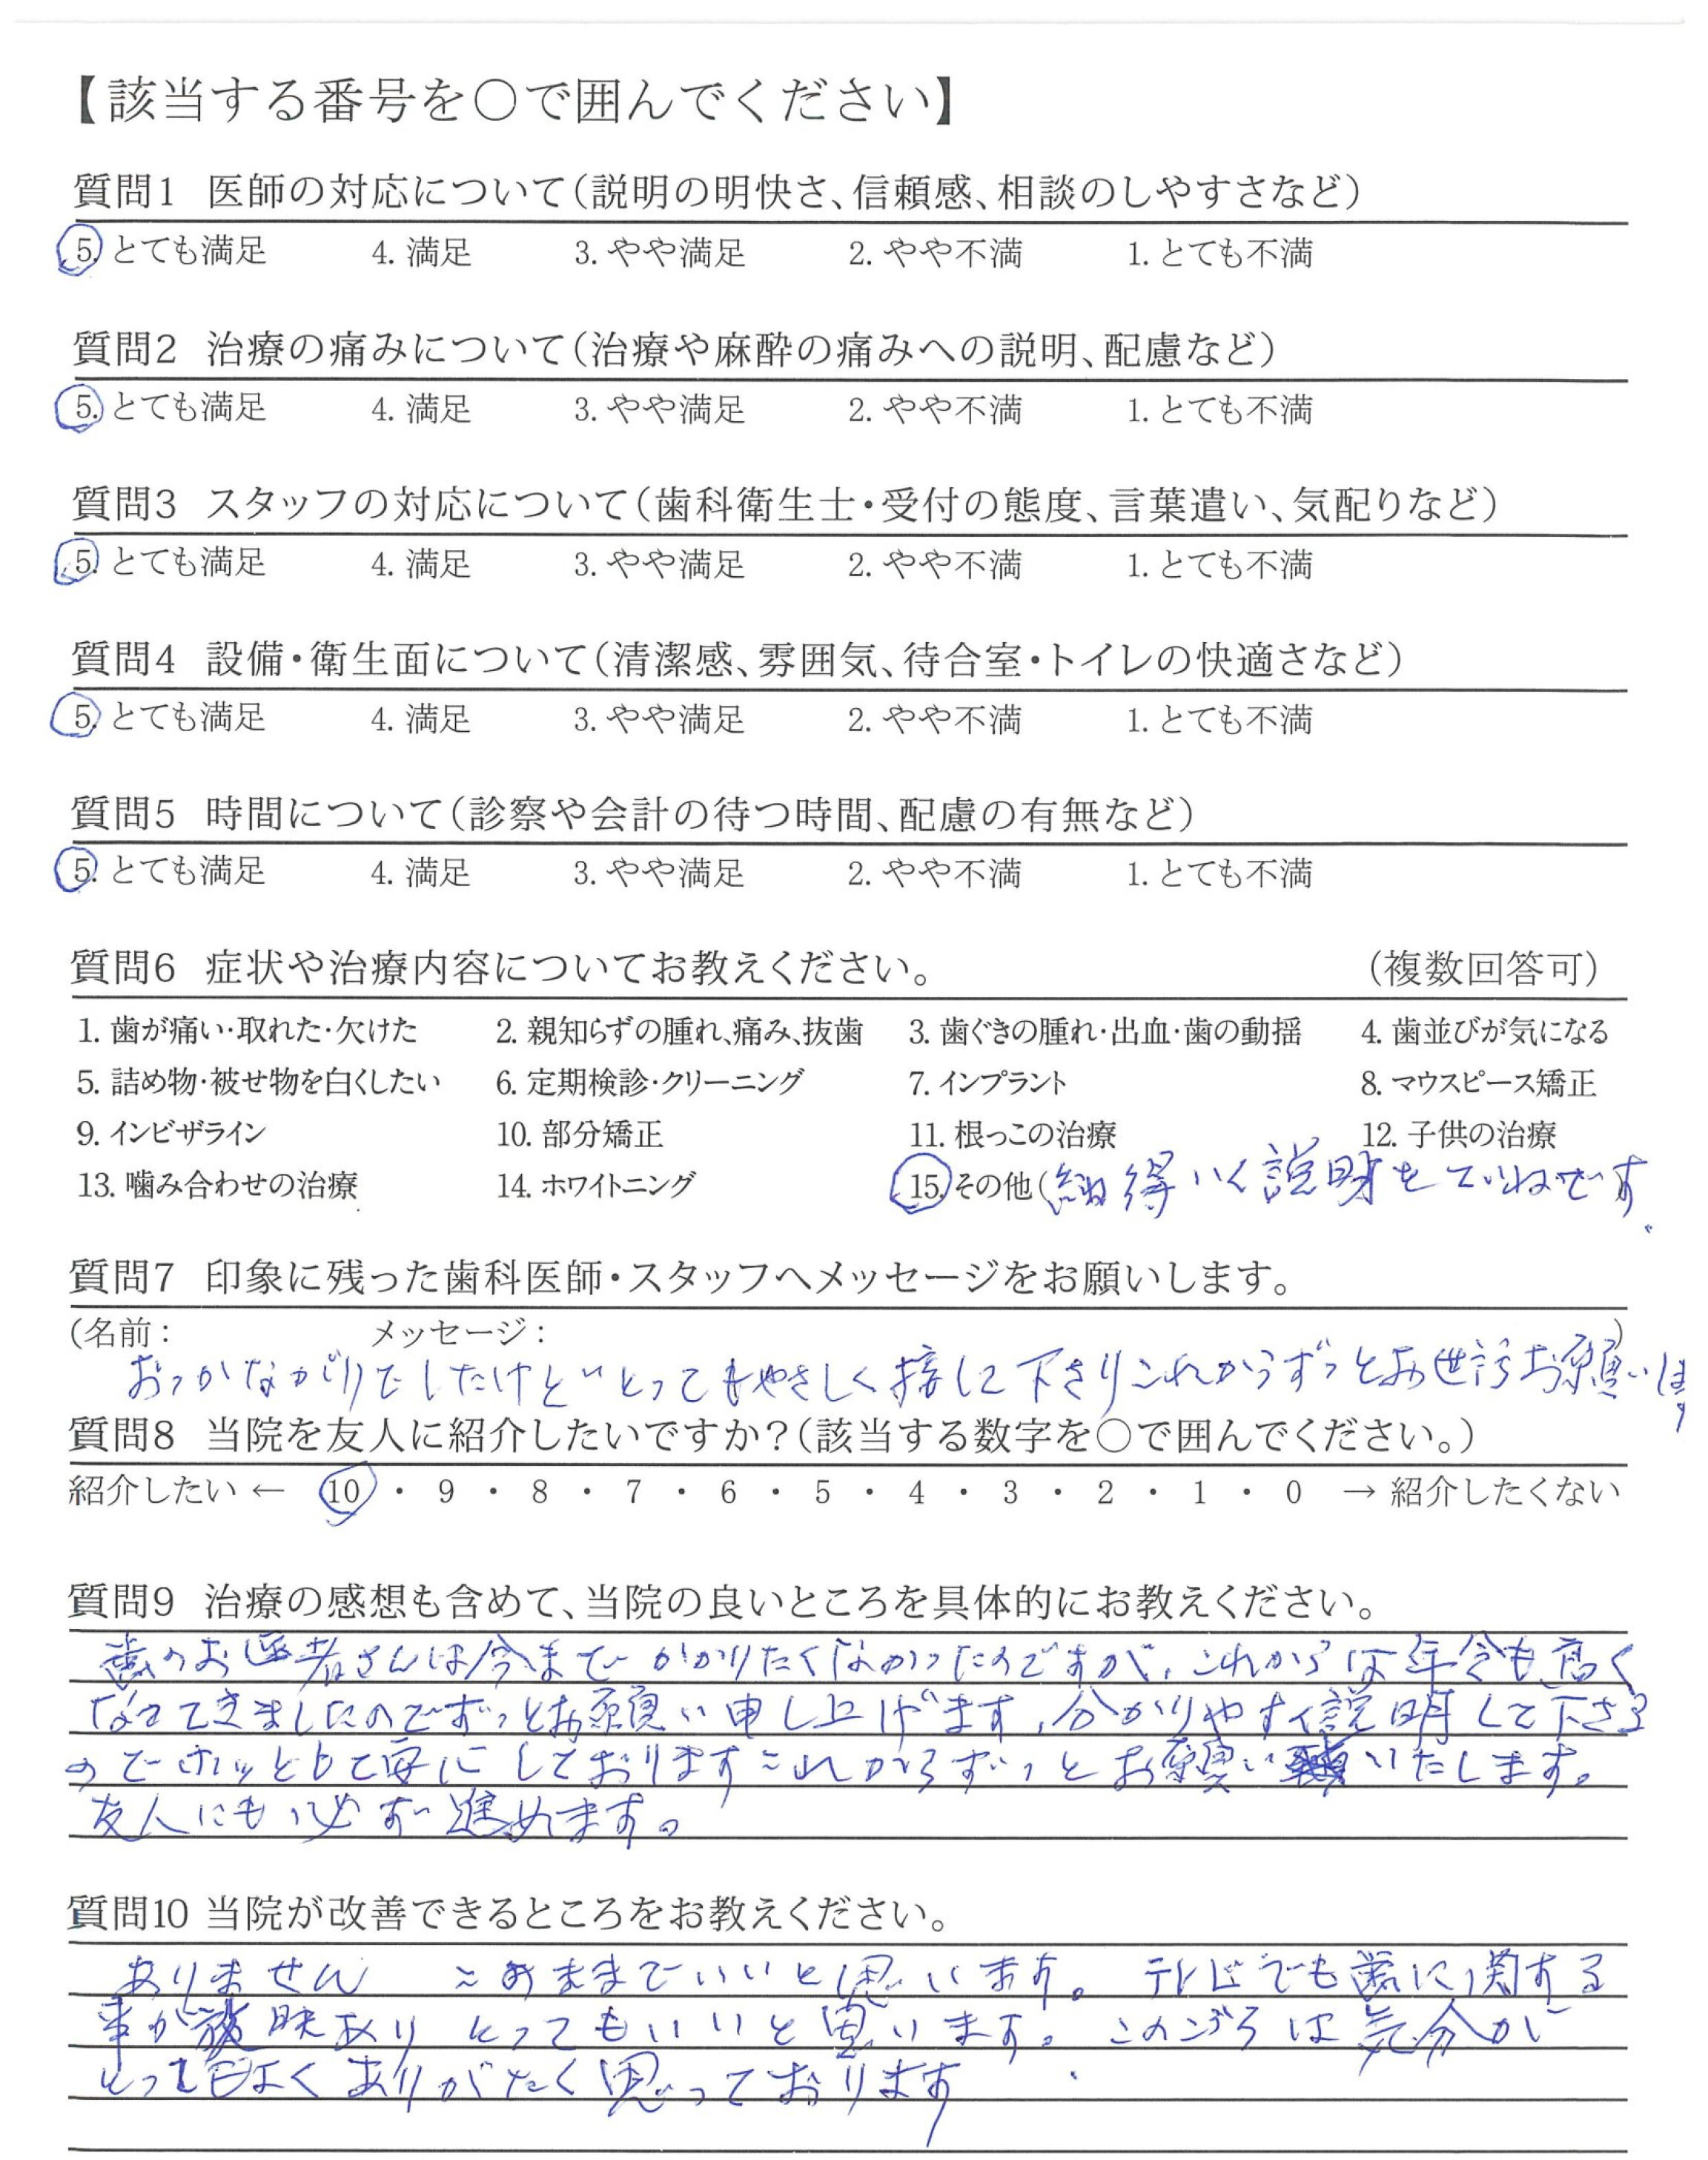 【該当する番号を○で囲んでください】
質問1 医師の対応について(説明の明快さ、信頼感、相談のしやすさなど)
5. とても満足 4. 満足 3. やや満足 2. やや不満 1. とても不満
質問2 治療の痛みについて(治療や麻酔の痛みへの説明、配慮など)
5. とても満足 4. 満足 3. やや満足 2. やや不満 1. とても不満
質問3 スタッフの対応について(歯科衛生士・受付の態度、言葉遣い、気配りなど)
5. とても満足 4. 満足 3. やや満足 2. やや不満 1. とても不満
質問4 設備・衛生面について(清潔感、雰囲気、待合室・トイレの快適さなど)
5. とても満足 4. 満足 3. やや満足 2. やや不満 1. とても不満
質問5 時間について(診察や会計の待つ時間、配慮の有無など)
5. とても満足 4. 満足 3. やや満足 2. やや不満 1. とても不満
質問6 症状や治療内容についてお教えください。 (複数回答可)
1. 歯が痛い・取れた・欠けた 2. 親知らずの腫れ、痛み、抜歯 3. 歯ぐきの腫れ・出血・歯の動揺 4. 歯並びが気になる
5. 詰め物・被せ物を白くしたい 6. 定期検診・クリーニング 7. インプラント 8. マウスピース矯正
9. インビザライン 10. 部分矯正 11. 根っこの治療 12. 子供の治療
13. 噛み合わせの治療 14. ホワイトニング 15. その他(納得いく説明をていねいです
質問7 印象に残った歯科医師・スタッフへメッセージをお願いします。
(名前: メッセージ: )
おっかながりでしたけどとってもやさしく接して下さりこれからずっとお世話お願いします
質問8 当院を友人に紹介したいですか?(該当する数字を○で囲んでください。)
紹介したい ← 10 ・ 9 ・ 8 ・ 7 ・ 6 ・ 5 ・ 4 ・ 3 ・ 2 ・ 1 ・ 0 → 紹介したくない
質問9 治療の感想も含めて、当院の良いところを具体的にお教えください。
歯のお医者さんは今までかかりたくなかったのですが、これからは年令も高く
なってきましたのでずっとお願い申し上げます、分かりやすく説明して下さる
のでホッと しております これからずっとお願いいたします。
友人にも必ず進めます。
質問10 当院が改善できるところをお教えください。
ありません このままでいいと思います。 テレビでも歯に関する
事が放映あり とってもいいと思います。 このごろは気分が
とってもよく ありがたく思っております